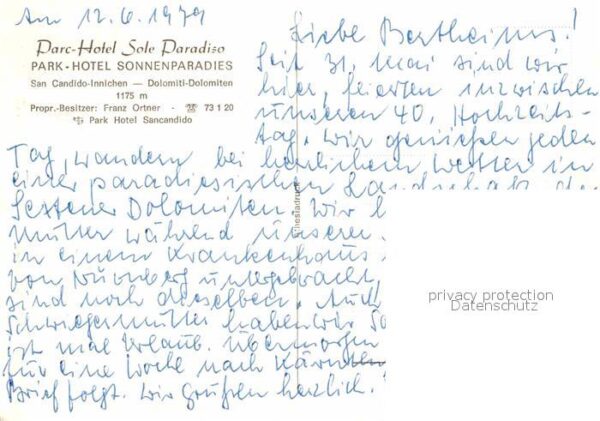 Am 12.6.1979
Parc-Hotel Sole Paradiso
PARK-HOTEL SONNENPARADIES
San Candido-Innichen — Dolomiti-Dolomiten
1175 m
Propr.-Besitzer: Franz Ortner - ☎ 73 1 20
Park Hotel Sancandido
Liebe Bertheims!
Seit 31. Mai sind wir
hier, feierten inzwischen
unseren 40. Hochzeits-
tag. Wir genießen jeden
Tag, wandern bei herrlichem Wetter in
einer paradiesischen Landschaft de
Sextener Dolomiten. Wir
mutter während unseren
in einem Krankenhaus
von Nürnberg untergebracht,
sind noch dieselben. Auch
Schwiegermutter haben wir So
ist mal Urlaub. Übermorgen
für eine Woche nach Kärnten
Brief folgt. Wir grüßen herzlich.
privacy protection
Datenschutz